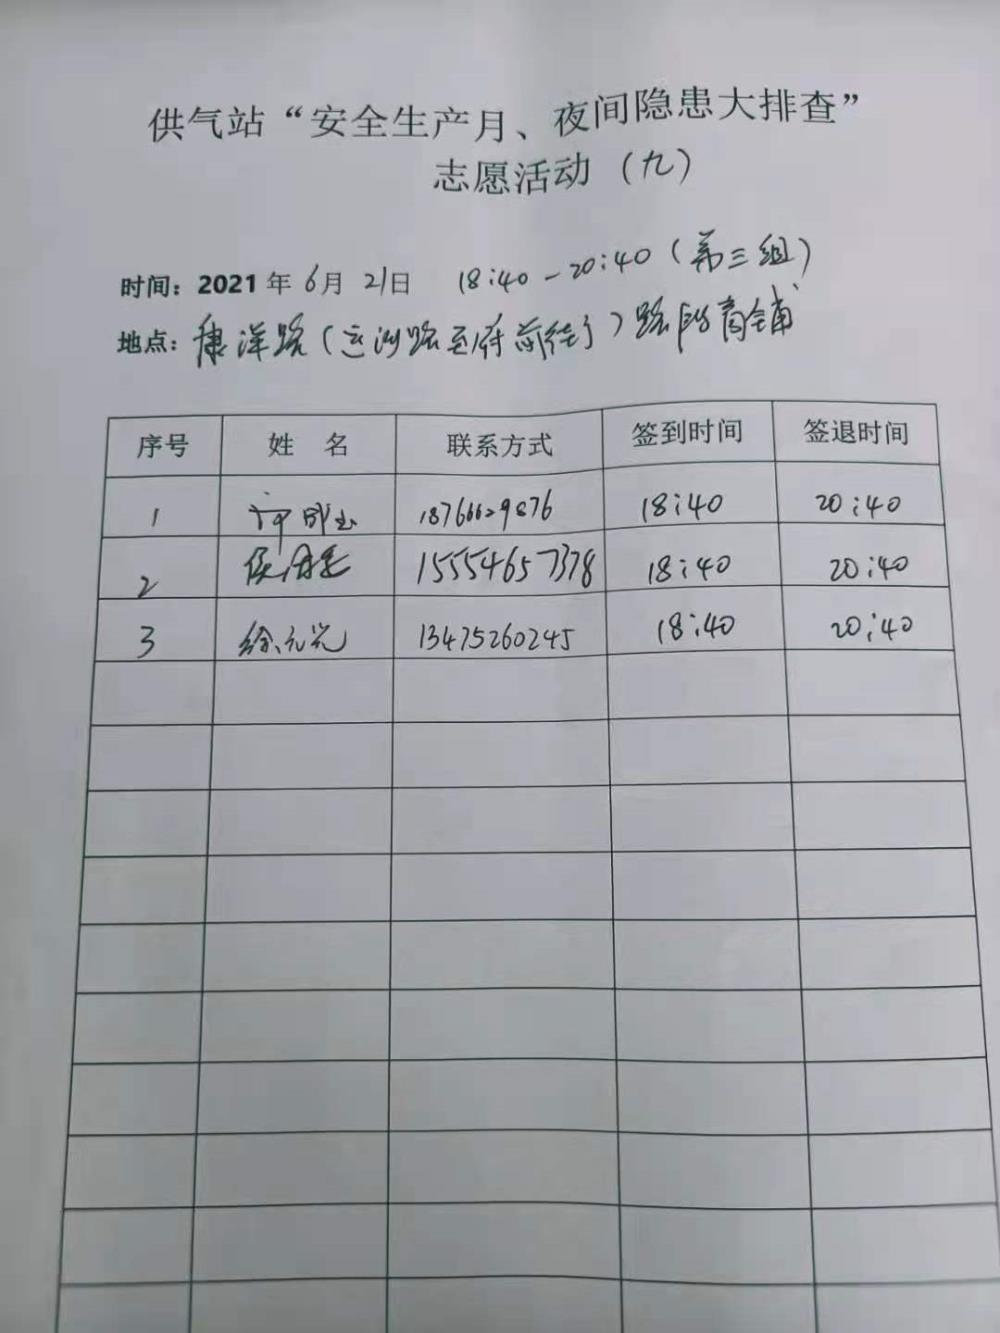 供气站“安全生产月、夜间隐患大排查”
志愿活动（九）
时间：2021年6月21日 18:40-20:40（第三组）
地点：康洋路（运河路至府前街）路段商铺
序号 姓 名 联系方式 签到时间 签退时间
1 18766629876 18:40 20:40
2 15554657378 18:40 20:40
3 徐元光 13475260245 18:40 20:40